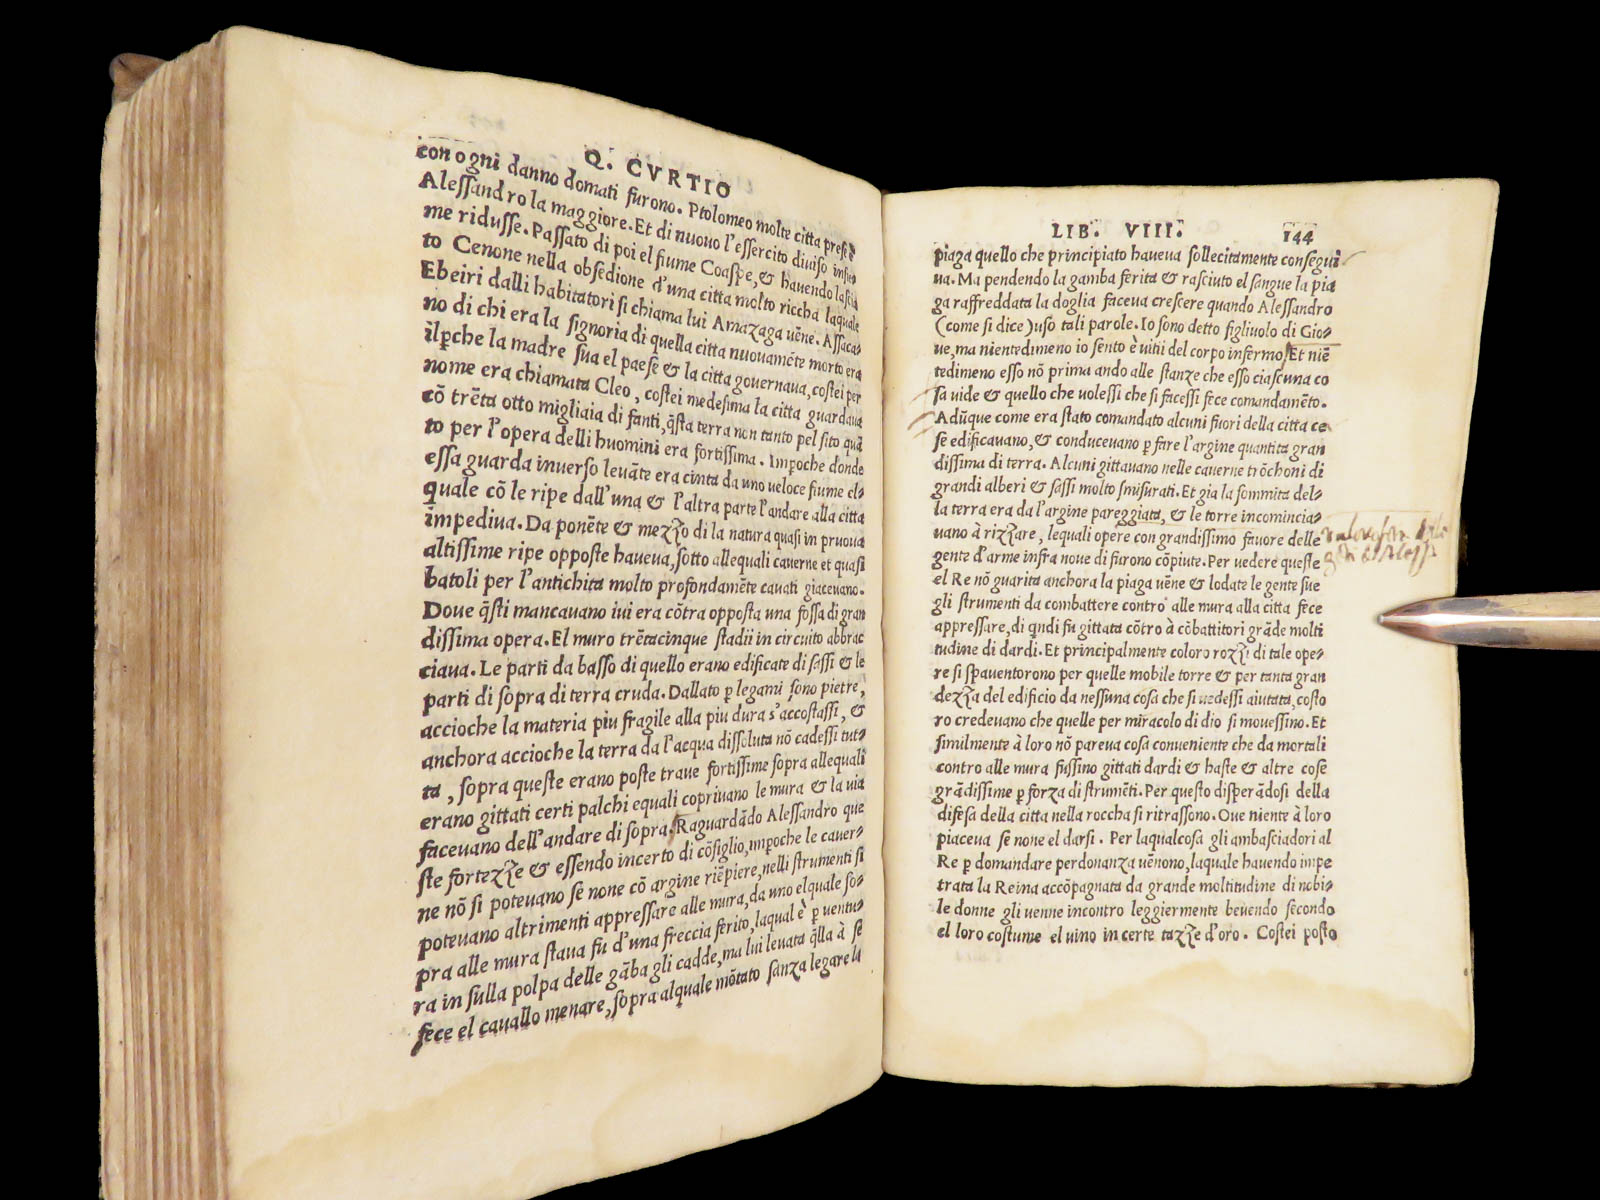 Q. CVRTIO
con ogni danno domati furono. Ptolomeo molte citta prese &
Alessandro la maggiore. Et di nuouo l'essercito diuiso insie-
me ridusse. Passato di poi el fiume Coaspe, & hauendo lascia
to Cenone nella obsedione d'una citta molto riccha laquale
Ebeiri dalli habitatori si chiama lui Amazaga uēne. Assaca-
no di chi era la signoria di quella citta nuouamēte morto era
ilp̄che la madre sua el paese & la citta gouernaua, costei per
nome era chiamata Cleo, costei medesima la citta guardaua
cō trēta otto migliaia di fanti, q̄sta terra non tanto pel sito quā
to per l'opera delli huomini era fortissima. Imp̄oche donde
essa guarda inuerso leuāte era cinta da uno ueloce fiume el-
quale cō le ripe dall'una & l'altra parte l'andare alla citta
impediua. Da ponēte & mezzo di la natura quasi in pruoua
altissime ripe opposte haueua, sotto allequali cauerne et quasi
batoli per l'antichita molto profondamēte cauati giaceuano.
Doue q̄sti mancauano iui era cōtra opposta una fossa di gran
dissima opera. El muro trētacinque stadii in circuito abbrac
ciaua. Le parti da basso di quello erano edificate di sassi & le
parti di sopra di terra cruda. Dallato p̱ legami sono pietre,
accioche la materia piu fragile alla piu dura s'accostassi, &
anchora accioche la terra da l'acqua dissoluta nō cadessi tut-
ta, sopra queste erano poste traue fortissime sopra allequali
erano gittati certi palchi equali copriuano le mura & la uia
faceuano dell'andare di sopra. Raguardādo Alessandro que
ste fortezze & essendo incerto di cōsiglio, imp̄oche le cauer-
ne nō si poteuano se none cō argine riēpiere, nelli strumenti si
poteuano altrimenti appressare alle mura, da uno elquale so-
pra alle mura staua fu d'una freccia ferito, laqual è p̱ uentu-
ra in sulla polpa delle gāba gli cadde, ma lui leuata q̄lla à se
fece el cauallo menare, sopra alquale mōtato sanza legare la
LIB. VIII. 144
piaga quello che principiato haueua sollecitamente consegui
ua. Ma pendendo la gamba ferita & rasciuto el sangue la pia
ga raffreddata la doglia faceua crescere quando Alessandro
(come si dice) uso tali parole. Io sono detto figliuolo di Gio-
ue, ma nientedimeno io sento è uitii del corpo infermo. Et niē
tedimeno esso nō prima ando alle stanze che esso ciascuna co
sa uide & quello che uolessi che si facessi fece comandamēto.
Adūque come era stato comandato alcuni fuori della citta ce
se edificauano, & conduceuano p̱ fare l'argine quantita gran
dissima di terra. Alcuni gittauano nelle cauerne trōchoni di
grandi alberi & sassi molto smisurati. Et gia la sommita del-
la terra era da l'argine pareggiata, & le torre incomincia-
uano à rizzare, lequali opere con grandissimo feruore delle
gente d'arme infra noue di furono cōpiute. Per uedere queste
el Re nō guarita anchora la piaga uēne & lodate le gente sue
gli strumenti da combattere contro alle mura alla citta fece
appressare, di q̄ndi fu gittata cōtro à cōbattitori grāde molti
tudine di dardi. Et principalmente coloro rozzi di tale ope-
re si spauentorono per quelle mobile torre & per tanta gran
dezza del edificio da nessuna cosa che si uedessi aiutata, costo
ro credeuano che quelle per miracolo di dio si mouessino. Et
similmente à loro nō pareua cosa conueniente che da mortali
contro alle mura fussino gittati dardi & haste & altre cose
grādissime p̱ forza di strumēti. Per questo disperādosi della
difesa della citta nella roccha si ritrassono. Oue niente à loro
piaceua se none el darsi. Per laqualcosa gli ambasciadori al
Re p̱ domandare perdonanza uēnono, laquale hauendo impe
trata la Reina accōpagnata da grande moltitudine di nobi-
le donne gli uenne incontro leggiermente beuendo secondo
el loro costume el uino in certe tazze d'oro. Costei posto